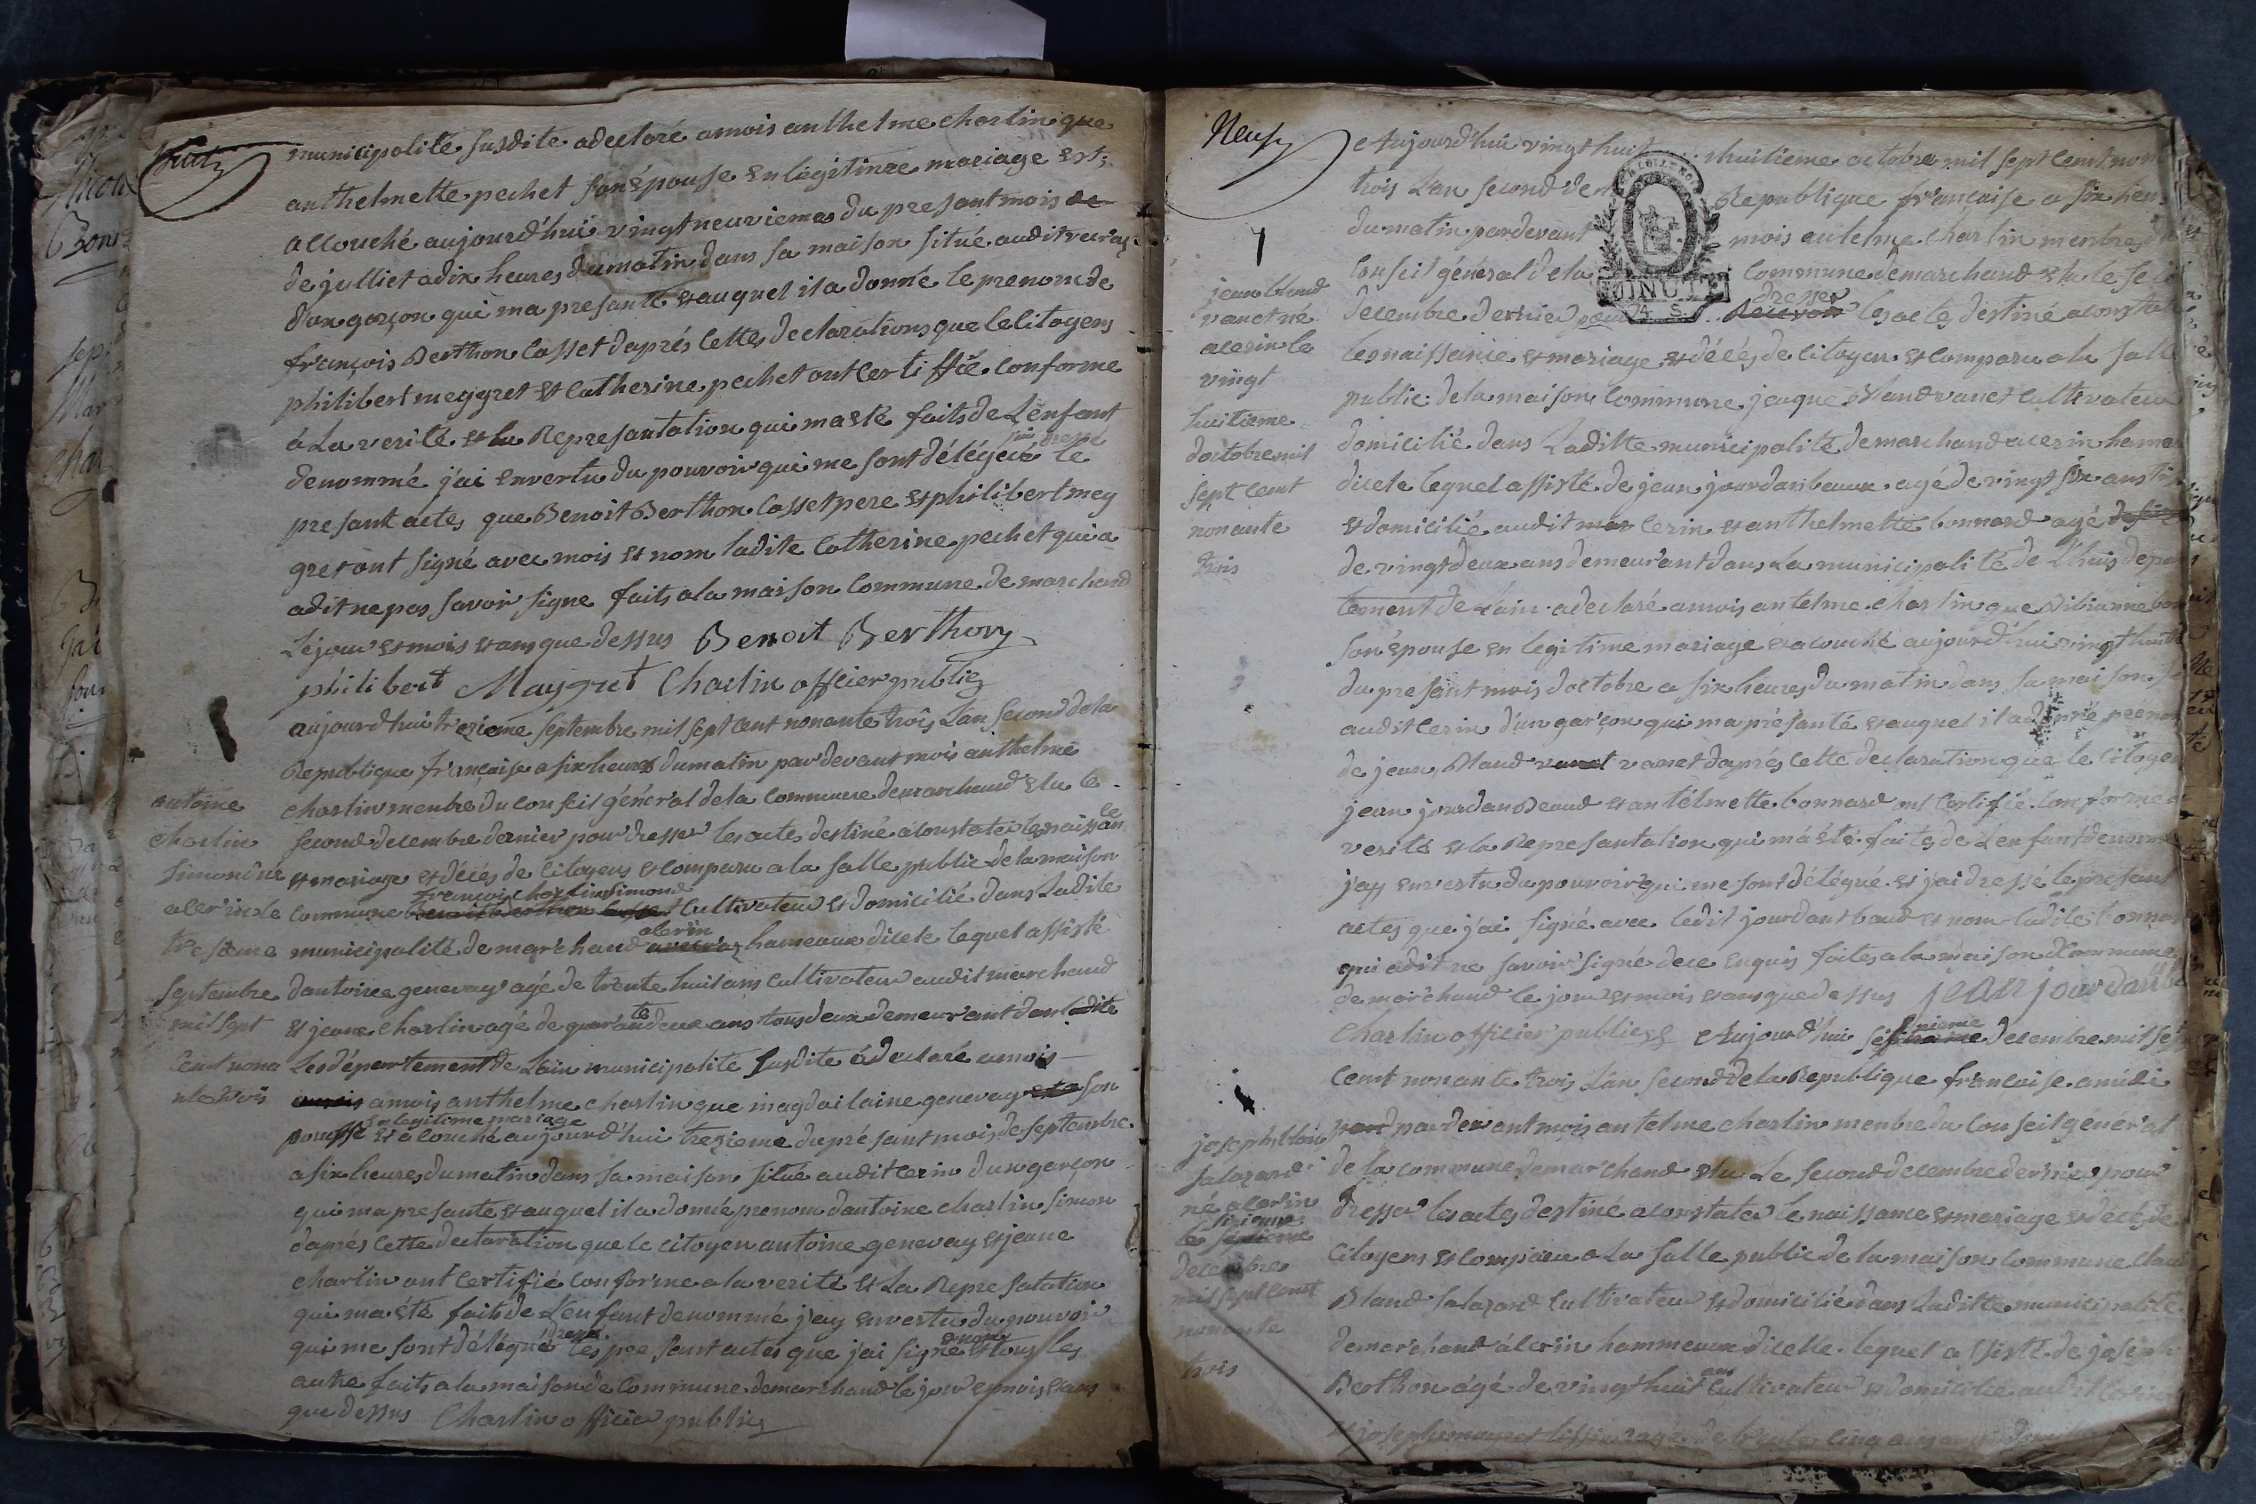 huit
municipalité susdite a declaré a mois anthelme charlin que
anthelmette pechet son épouse en légitime mariage est
accouché aujourd'hui vingt neuviemes du presant mois de
de julliet a dix heures du matin dans sa maison situé audit
d'un garçon qui ma presanté et auquel il a donné le prenom de
françois Berthon Cosset daprés cette declarations que le citoyens
philibert meygret et Catherine pechet ont certiffié conforme
á La verité et la Representation qui ma eté faits de L'enfant
denommé j'ai envertu du pouvoir qui me sont délégué le
presant actes que Benoit Berthon Cosset pere et philibert mey
gret ont signé avec mois et nom ladite Catherine pechet qui a
adit ne pas savoir signe faits a la maison Commune de marchand
Le jour et mois et ans que dessus Benoit Berthon
philibert Maygret Charlin officier public
aujourdhui trezieme septembre mil sept cent nonante trois L'an second de la
Republique française a six heures du matin par devant mois anthelme
charlin menbre du conseil général de la commune de marchand elu le
second decembre dernier pour dresser les actes destiné a constater les naissan ce
et mariage et décés de citoyens et comparu a la salle public de la maison
françois charlin simond
commune Cultivateur et domicilié dans Ladite
a cerin
municipalité de marchand hameaux dicele lequel assisté
dantoine genevay agé de trente huit ans Cultivateur audit marchand
et jean charlin agé de quarante deux ans tous deux demeurant dan ladite
Les département de Lain municipalité susdite á declaré a mois
a mois anthelme charlin que magdailaine genevay son
en legitime mariage
épousse et a couché aujourd'hui trezieme du présant mois de septembre
a six heures du matin dans sa maison situé audit cerin d'un garçon
qui ma presanté et auquel il a donné prenom dantoine charlin simon
daprés cette declaration que le citoyen antoine genevay et jean
charlin ont certifié conforme a la verité et La Represatation
qui ma été faits de L'enfant denommé j'ay envertu du pouvoir
qui me sont délégué les presant actes que j'ai signé et nom tous les
autre faits a la maison de commune de marchand le jour et mois et ans
que dessus Charlin officier public
antoine
charlin
simond né
a cerin le
tresieme
septembre
mil sept
cent nona
nte trois
Neuf
Aujourd'hui vingt huit huitieme octobre mil sept cent nona
trois L'an second de Republique française a six heu
du matin par devant mois antelme charlin menbre du
Conseil général de la Commune de marchand elu le se
dresser
decembre dernier pour les actes destiné a constat
les naissance et mariage et décés de citoyen et comparu a la salle
public de la maison commune jaque Bland vanet cultivateur
domicilié dans Ladite municipalité de marchand a cerin hame
dicele lequel assisté de jean jourdan beaux agé de vingt six ans
et domicilié audit cerin et anthelmette bonnard agé
de vingt deux ans demeurant dans La municipalité de Lhuis depar
tement de Lain a declaré a mois antelme charlin que Bibianne bon
son épouse en legitime mariage et acouché aujourd'hui vingt huit
du présant mois doctobre a six heures du matin dans sa maison
audit cerin d'un garçon qui ma présanté et auquel il a donné prenom
de jean Bland vanet vanet daprés cette declaration que le citoyen
jean jourdan Beaud et antelmette bonnard ont certifié conforme
verité et la Representation qui má été faits de L'enfant denommé
j'ay envertu du pouvoir qui me sont délégué et j'ai dressé le presant
actes que j'ai signé avec ledit jourdant baud et nom ladite bonnar
qui adit ne savoir signé dece enquis faites a la maison Commune
de marchand le jour et mois et ans que dessus jean jourdan
Charlin officier public Aujourd'hui sixieme decembre mil sept
cent nonante trois L'an second de la Republique française a midi
par devant mois antelme charlin menbre du Conseil général
de La commune de marchand elu Le second decembre dernier pour
dresser les actes destiné a constater le naissance et mariage et décés de
Citoyens et comparu a La salle public de la maison commune Claud
Bland Salazard Cultivateur et domicilié dans Ladite municipalité
de marchand a Cerin hammeaux dicelle lequel assisté de joseph
Berthon agé de vingt huit ans Cultivateur et domicilié audit
7
jean bland
vanet né
a cerin le
vingt
huitieme
doctobre mil
sept cent
nonante
trois
joseph bland
Salazard
né a cerin
le sixieme
decembre
mil sept cent
nonante
trois